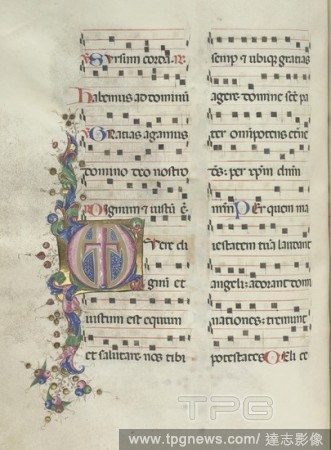 Sursum corda. R.
Habemus ad dominū
Gratias agamus
domino deo nostro
Dignum et iustū ē.
Vere di
gnū et
iustum est equum
et salutare. nos tibi
semp et ubique gratias
agere. domine scē pa
ter omīpotens eterne
deus: per xpm dnm
nrm. Per quem ma
iestatem tuā laudant
angeli: adorant domi
nationes: tremunt
potestates. Celi ce
TPG
www.tpgnews.com/達志影像